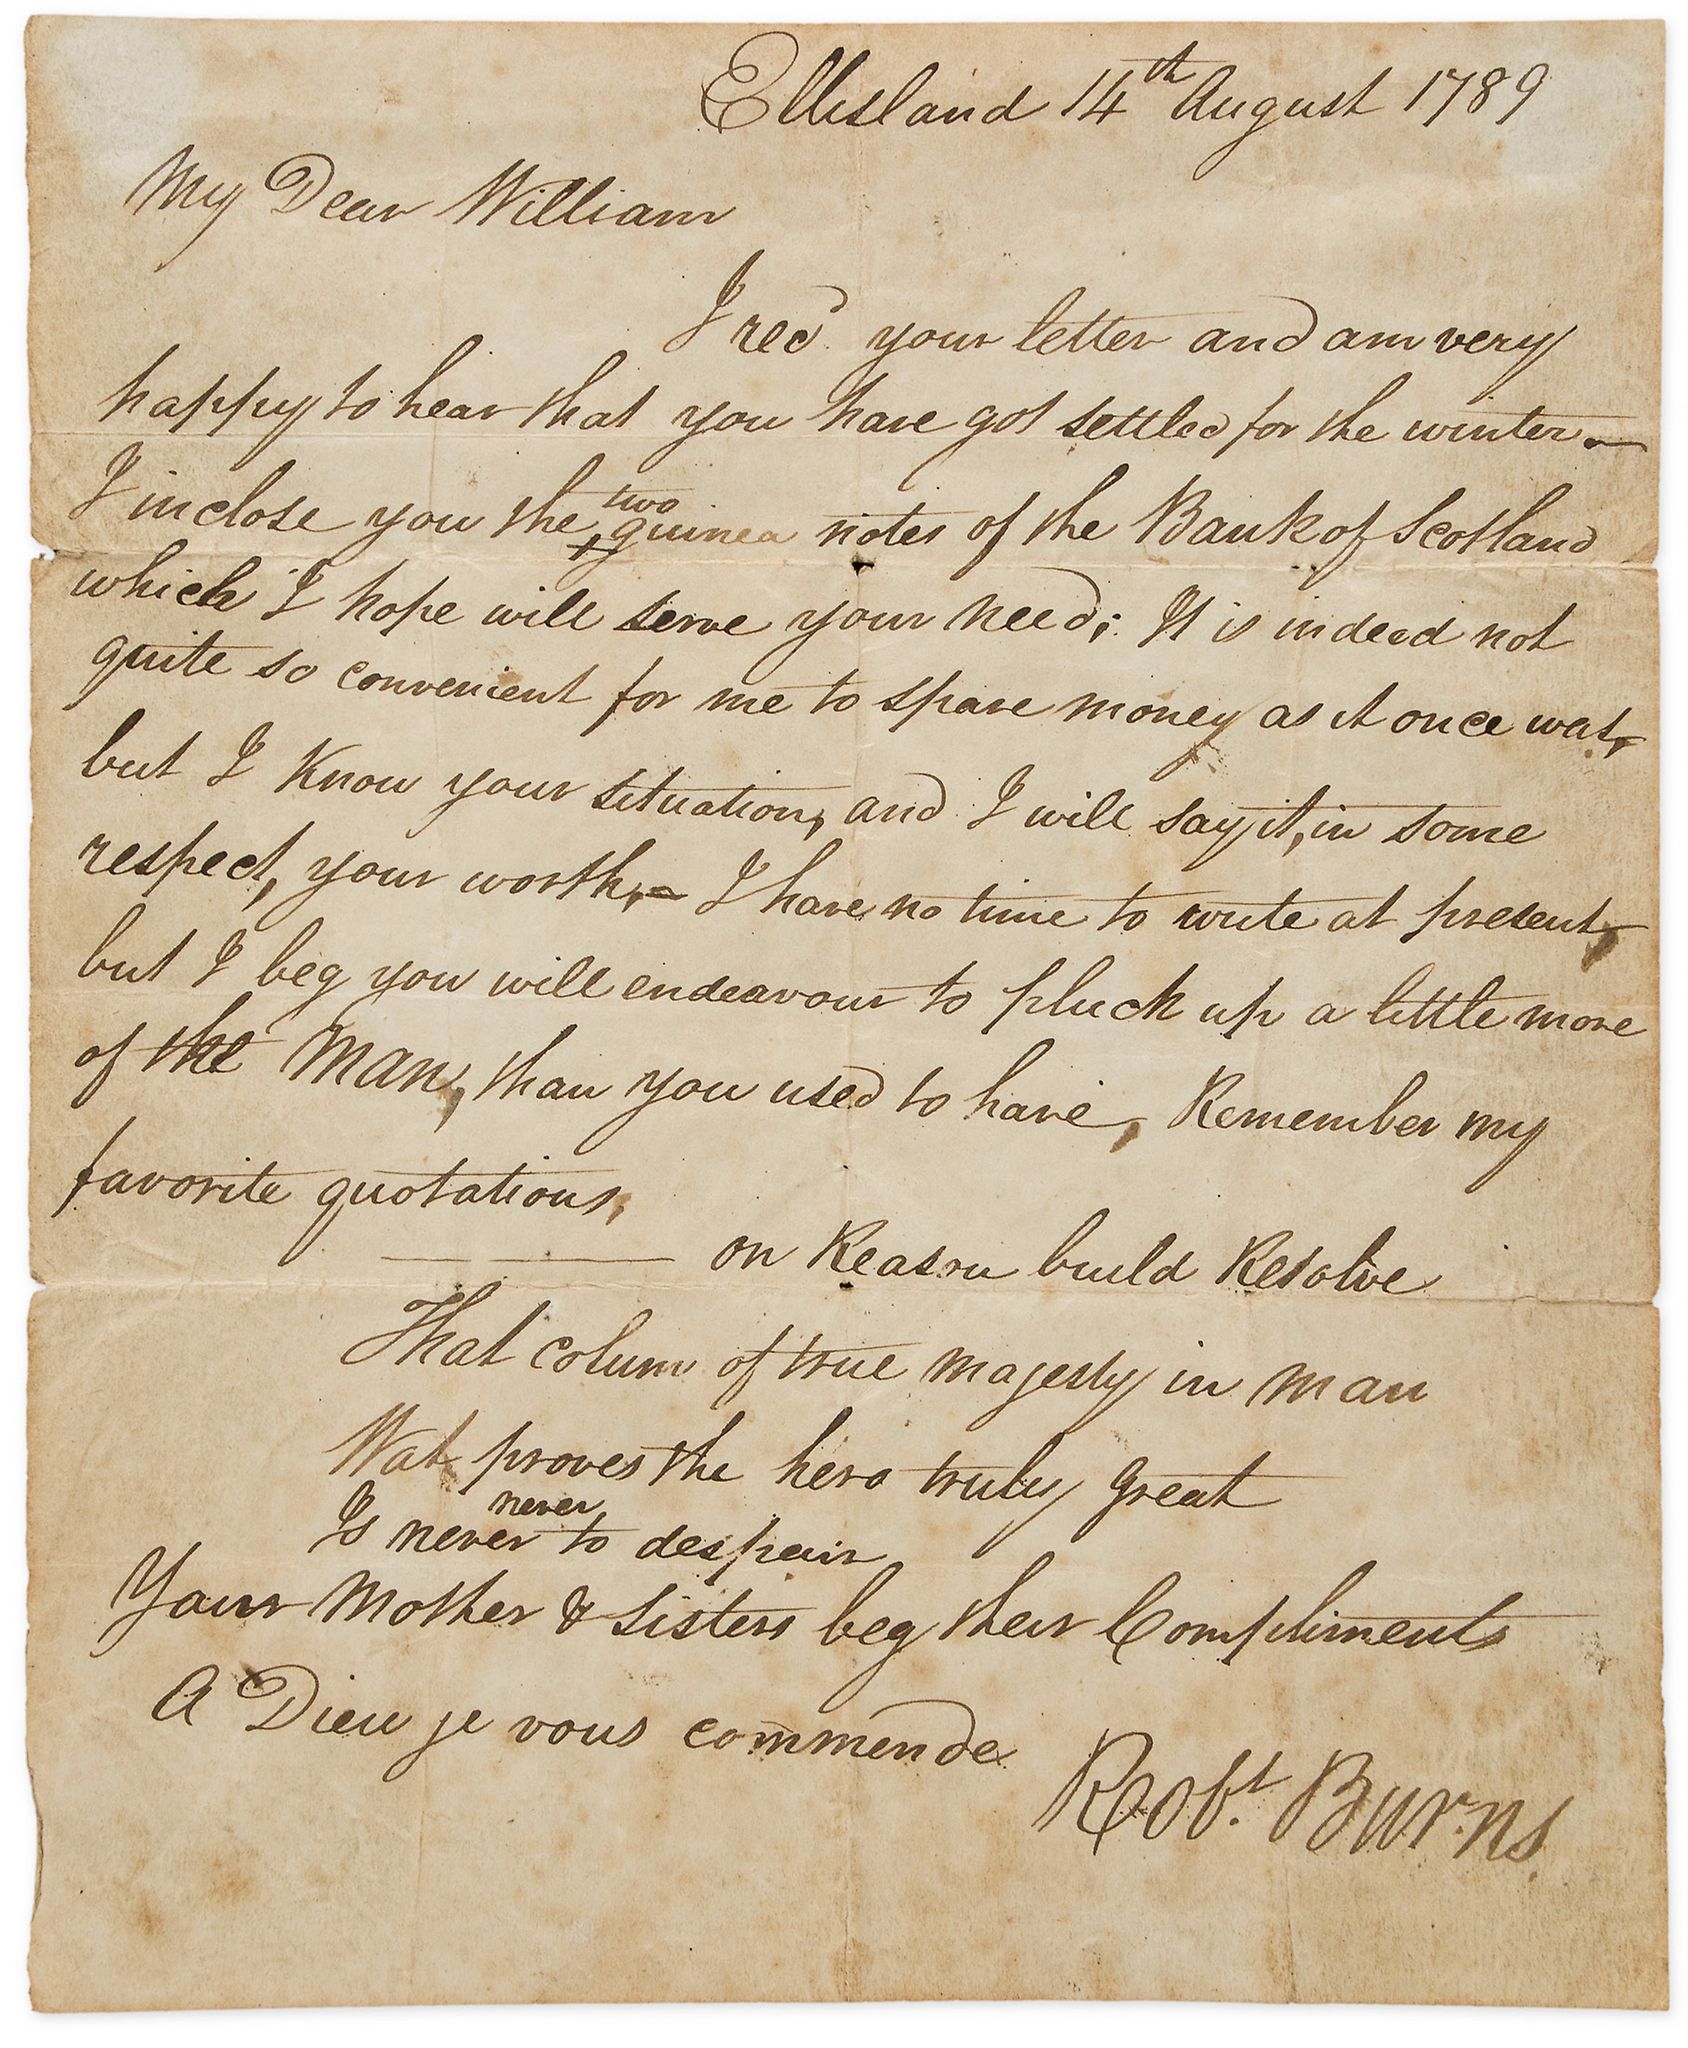 Ellisland 14th August 1789
My Dear William
I recd. your letter and am very
happy to hear that you have got settled for the winter —
I inclose you the two guinea notes of the Bank of Scotland
which I hope will serve your need; It is indeed not
quite so convenient for me to spare money as it once was,
but I know your situation, and I will say it, in some
respect, your worth, — I have no time to write at present,
but I beg you will endeavour to pluck up a little more
of the MAN, than you used to have, Remember my
favorite quotations,
— — on Reason build Resolve
That colum of true majesty in man
Wat proves the hero truly great
never
Is never to despair
Your Mother & Sisters beg their Compliments
A Dieu je vous commende
Robt. Burns.